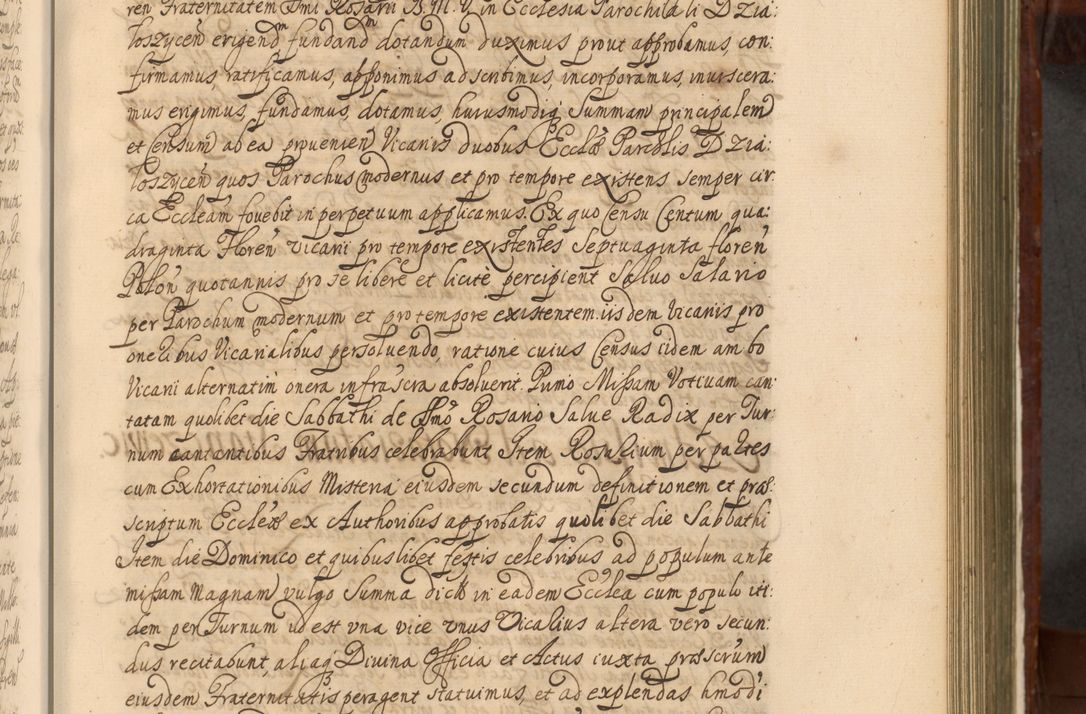 ren Fraternitatem Ssmi Rosarii B. M. V. in Ecclesia Parochiali Dzia:
łoszyceñ erigendm fundandm dotandum duximus prout approbamus, con:
firmamus ratificamus, apponimus adscribimus, incorporamus, inviscera:
mus erigimus, fundamus, dotamus, huiusmodiq; Summam principalem
et Censum ab ea provenien Vicariis duobus Ecclæ Parchlis Dzia:
łoszyceñ quos Parochus modernus et pro tempore existens semper cir
ca Eccleam fovebit in perpetuum applicamus. Ex quo Censu Centum qua:
draginta Floreñ Vicarii pro tempore existentes Septuaginta floreñ
Poloñ quotannis pro se libere et licitè percipient Salvo Salario
per Parochum modernum et pro tempore existentem iisdem Vicariis pro
oneribus Vicarialibus persoluendo, ratione cuius Census iidem ambo
Vicarii alternatim onera infrascra absoluent. Primo Missam Votivam can:
tatam quolibet die Sabbathi de Ssmo Rosario Salve Radix per Tur:
num cantantibus Fratribus celebrabunt Item Rosarium per partes
cum Exhortationibus Misteria eiusdem secundum definitionem et præ:
scriptum Ecclæ ex Authoribus approbatis quolibet die Sabbathi
Item die Dominico et quibuslibet festis celebribus ad populum ante
missam Magnam vulgo Summa dictã in eadem Ecclea cum populo iti:
dem per Turnum id est una vice unus Vicarius altera vero secun:
dus recitabunt, aliaq; Divina Officia et Actus iuxta præscrium
eiusdem Fraternitatis peragent statuimus, et ad explendas hmodi